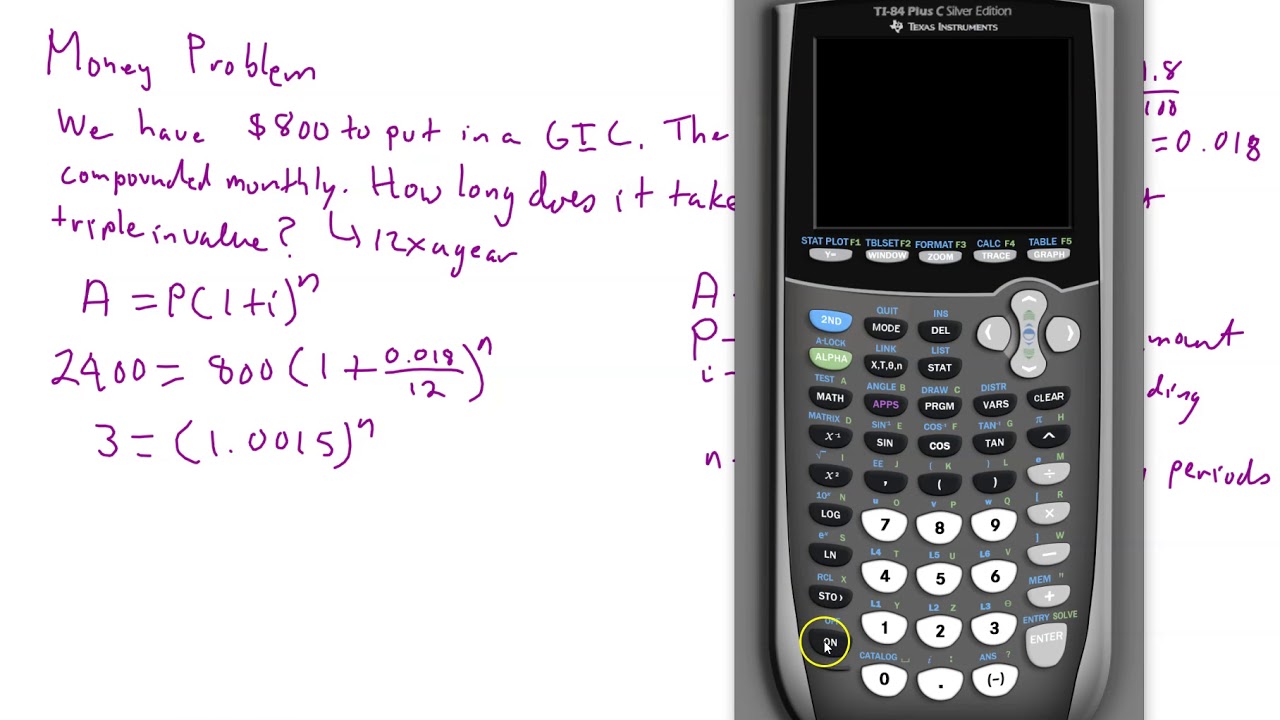 Money Problem
We have $800 to put in a GIC. The
compounded monthly. How long does it take
triple in value? ↳ 12x a year
A = P(1+i)^n
2400 = 800 (1 + 0.018/12)^n
3 = (1.0015)^n
1.8
100
= 0.018
A
P - mount
i - ding
n - periods
TI-84 Plus C Silver Edition
TEXAS INSTRUMENTS
STAT PLOT F1 TBLSET F2 FORMAT F3 CALC F4 TABLE F5
Y= WINDOW ZOOM TRACE GRAPH
QUIT INS
2ND MODE DEL
A-LOCK LINK LIST
ALPHA X,T,θ,n STAT
TEST A ANGLE B DRAW C DISTR
MATH APPS PRGM VARS CLEAR
MATRIX D SIN⁻¹ E COS⁻¹ F TAN⁻¹ G π H
x⁻¹ SIN COS TAN ^
√ I EE J { K } L e M
x² , ( ) ÷
10ˣ N u O v P w Q [ R
LOG 7 8 9 ×
eˣ S L4 T L5 U L6 V ] W
LN 4 5 6 −
RCL X L1 Y L2 Z L3 θ MEM "
STO› 1 2 3 +
OFF CATALOG ⎵ i : ANS ? ENTRY SOLVE
ON 0 . (-) ENTER